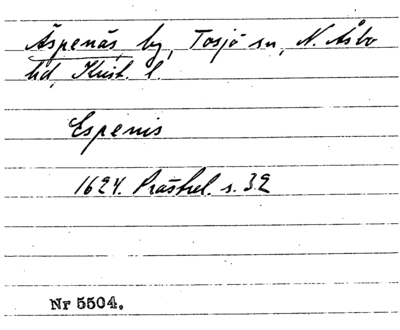 Äspenäs, by, Tosjö sn, N. Åsbo
hd, Krist. l.
Espenis
1624. Prästrel. s. 32
Nr 5504.